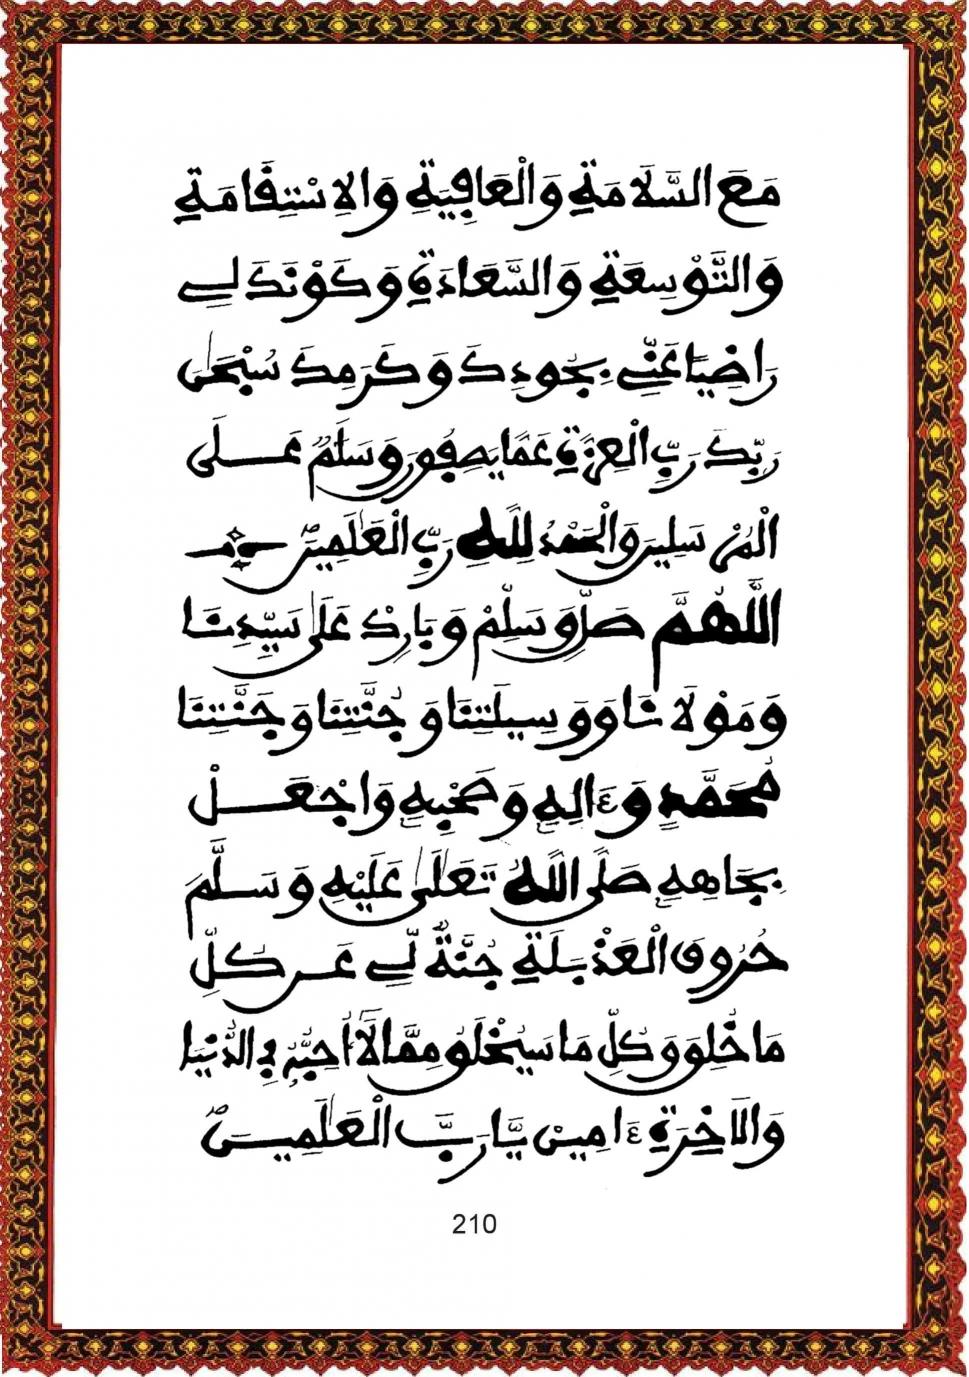 مَعَ السَّلَامَةِ وَالْعَافِيَةِ وَالِاسْتِقَامَةِ
وَالتَّوْسِعَةِ وَالسَّعَادَةِ وَكَوْنِكَ لِي
رَاضِيًا عَنِّي بِجُودِكَ وَكَرَمِكَ سُبْحَٰنَ
رَبِّكَ رَبِّ الْعِزَّةِ عَمَّا يَصِفُونَ وَسَلَٰمٌ عَلَى
الْمُرْسَلِينَ وَالْحَمْدُ لِلَّهِ رَبِّ الْعَٰلَمِينَ
اللَّهُمَّ صَلِّ وَسَلِّمْ وَبَارِكْ عَلَىٰ سَيِّدِنَا
وَمَوْلَانَا وَوَسِيلَتِنَا وَجُنَّتِنَا وَجَنَّتِنَا
مُحَمَّدٍ وَءَالِهِ وَصَحْبِهِ وَاجْعَلْ
بِجَاهِهِ صَلَّى اللَّهُ تَعَٰلَىٰ عَلَيْهِ وَسَلَّمَ
حُرُوفَ الْفَذْلَكَةِ جُنَّةً لِّي عَن كُلِّ
مَا خُلِقَ وَكُلِّ مَا سَيُخْلَقُ مِمَّا لَا أُحِبُّهُ فِي الدُّنْيَا
وَالَاخِرَةِ ءَامِينَ يَا رَبَّ الْعَٰلَمِينَ
210